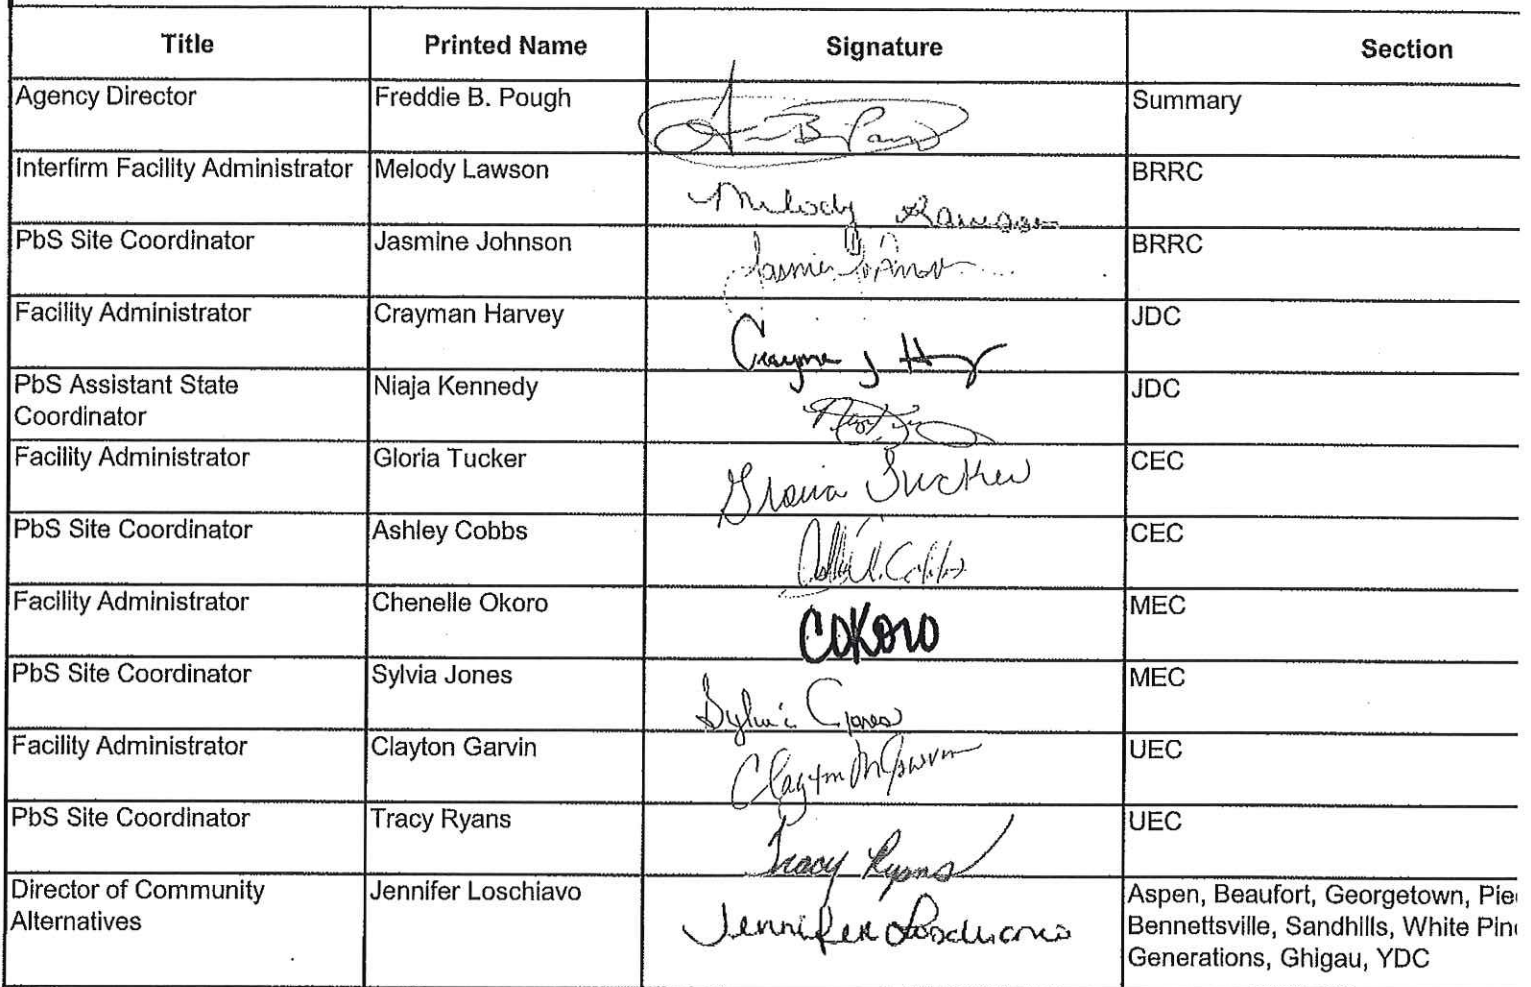 Title Printed Name Signature Section
Agency Director Freddie B. Pough Summary
Interfirm Facility Administrator Melody Lawson Melody BRRC
PbS Site Coordinator Jasmine Johnson BRRC
Facility Administrator Crayman Harvey JDC
PbS Assistant State Niaja Kennedy JDC
Coordinator
Facility Administrator Gloria Tucker Gloria Tucker CEC
PbS Site Coordinator Ashley Cobbs CEC
Facility Administrator Chenelle Okoro COKORO MEC
PbS Site Coordinator Sylvia Jones Sylvia Jones MEC
Facility Administrator Clayton Garvin Clayton M Garvin UEC
PbS Site Coordinator Tracy Ryans Tracy Ryans UEC
Director of Community Jennifer Loschiavo Jennifer Loschiavo Aspen, Beaufort, Georgetown, Pie
Alternatives Bennettsville, Sandhills, White Pin
Generations, Ghigau, YDC